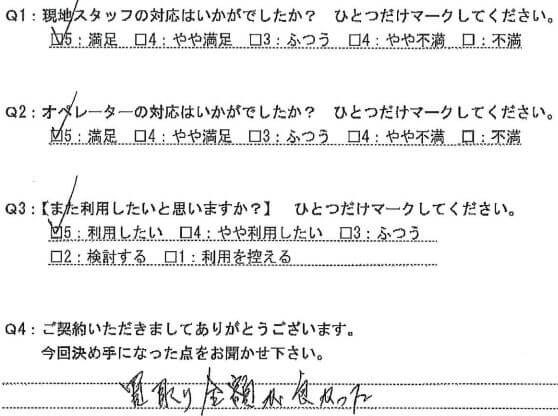 Q1：現地スタッフの対応はいかがでしたか？　ひとつだけマークしてください。
☑5：満足　☐4：やや満足　☐3：ふつう　☐4：やや不満　☐：不満
Q2：オペレーターの対応はいかがでしたか？　ひとつだけマークしてください。
☑5：満足　☐4：やや満足　☐3：ふつう　☐4：やや不満　☐：不満
Q3：【また利用したいと思いますか？】　ひとつだけマークしてください。
☑5：利用したい　☐4：やや利用したい　☐3：ふつう
☐2：検討する　☐1：利用を控える
Q4：ご契約いただきましてありがとうございます。
今回決め手になった点をお聞かせ下さい。
買取り金額が良かった